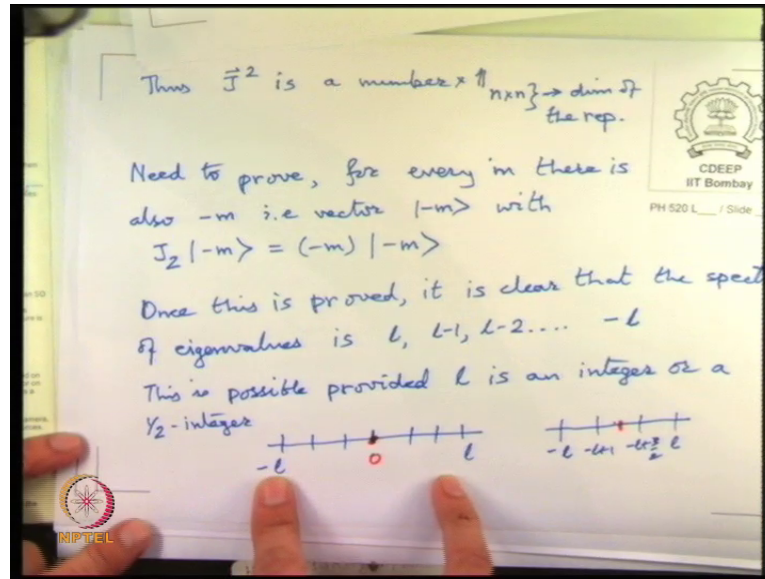 Thus J⃗² is a number × 𝟙 n×n } → dim of
the rep.
CDEEP
IIT Bombay
PH 520 L___ / Slide
Need to prove, for every m there is
also -m i.e vector |-m> with
J₂ |-m> = (-m) |-m>
Once this is proved, it is clear that the spect
of eigenvalues is l, l-1, l-2.... -l
This is possible provided l is an integer or a
½-integer
-l 0 l
-l -l+1 -l+3/2 l
NPTEL